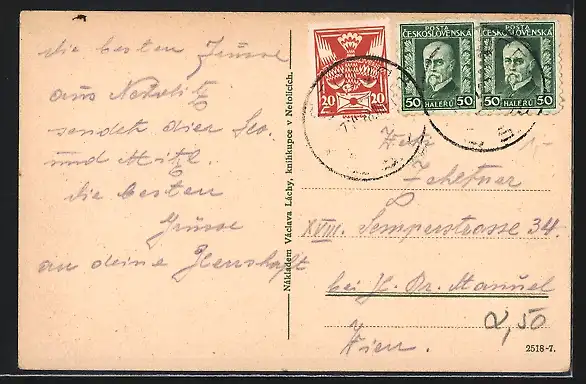 die besten Grüsse
aus Netolitz
sendet dier Leo.
und Mitzl.
die besten
Grüsse
an deine Herrshaft
Nákladem Václava Láchy, knihkupce v Netolicích.
20 20
POSTA
ČESKOSLOVENSKA
50 HALÉŘŮ 50
POSTA
ČESKOSLOVENSKA
50 HALÉŘŮ 50
1-
XVIII. Semperstrasse 34.
bei H. Dr. Manuel
2,50
Wien.
2518-7.